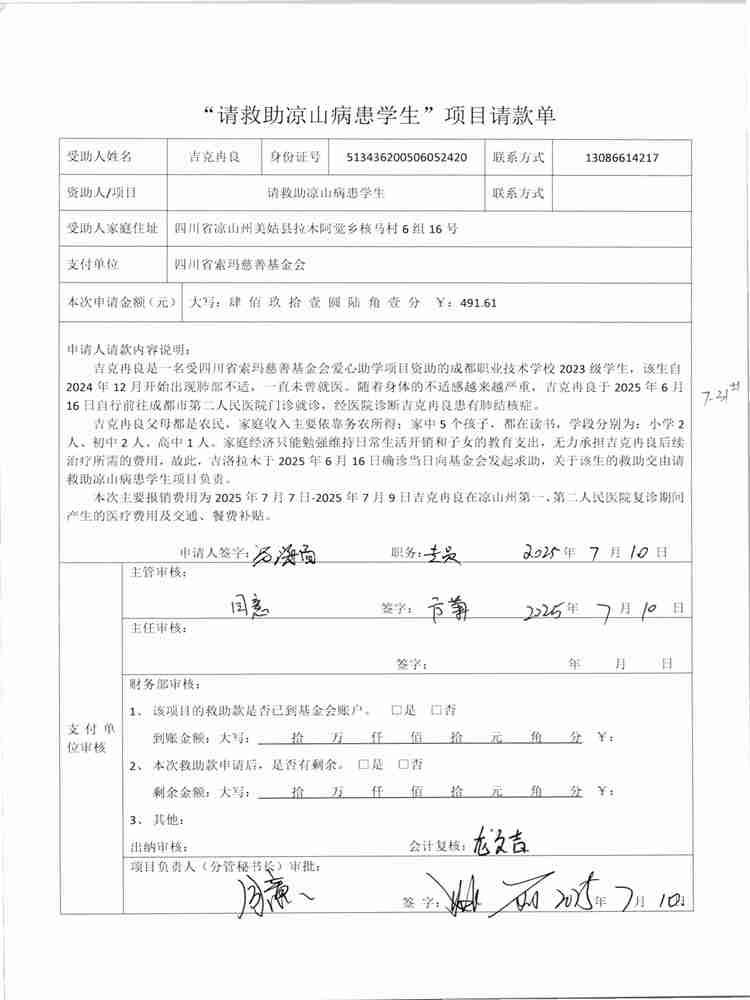 “请救助凉山病患学生”项目请款单
受助人姓名 吉克冉良 身份证号 513436200506052420 联系方式 13086614217
资助人/项目 请救助凉山病患学生 联系方式
受助人家庭住址 四川省凉山州美姑县拉木阿觉乡核马村 6 组 16 号
支付单位 四川省索玛慈善基金会
本次申请金额（元） 大写：肆 佰 玖 拾 壹 圆 陆 角 壹 分 ￥：491.61
申请人请款内容说明：
吉克冉良是一名受四川省索玛慈善基金会爱心助学项目资助的成都职业技术学校 2023 级学生，该生自
2024 年 12 月开始出现肺部不适，一直未曾就医。随着身体的不适感越来越严重，吉克冉良于 2025 年 6 月
16 日自行前往成都市第二人民医院门诊就诊，经医院诊断吉克冉良患有肺结核症。
吉克冉良父母都是农民，家庭收入主要依靠务农所得；家中 5 个孩子，都在读书，学段分别为：小学 2
人、初中 2 人、高中 1 人。家庭经济只能勉强维持日常生活开销和子女的教育支出，无力承担吉克冉良后续
治疗所需的费用，故此，吉洛拉木于 2025 年 6 月 16 日确诊当日向基金会发起求助，关于该生的救助交由请
救助凉山病患学生项目负责。
本次主要报销费用为 2025 年 7 月 7 日-2025 年 7 月 9 日吉克冉良在凉山州第一、第二人民医院复诊期间
产生的医疗费用及交通、餐费补贴。
申请人签字： 职务： 2025 年 7 月 10 日
支付单位审核
主管审核：
同意 签字： 2025 年 7 月 10 日
主任审核：
签字： 年 月 日
财务部审核：
1、 该项目的救助款是否已到基金会账户。 □是 □否
到账金额：大写： 拾 万 仟 佰 拾 元 角 分 ￥：
2、 本次救助款申请后，是否有剩余。 □是 □否
剩余金额：大写： 拾 万 仟 佰 拾 元 角 分 ￥：
3、 其他：
出纳审核： 会计复核：
项目负责人（分管秘书长）审批：
签 字： 2025 年 7 月 10